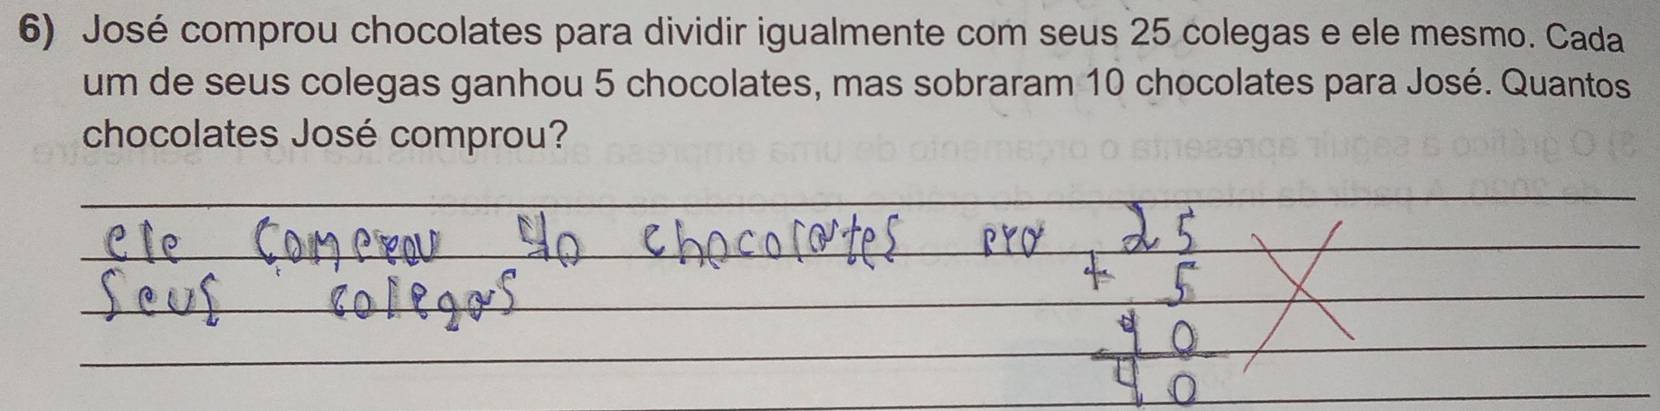 6) José comprou chocolates para dividir igualmente com seus 25 colegas e ele mesmo. Cada
um de seus colegas ganhou 5 chocolates, mas sobraram 10 chocolates para José. Quantos
chocolates José comprou?
ele comprou 40 chocolates pra
seus colegas
25
+ 5
10
40